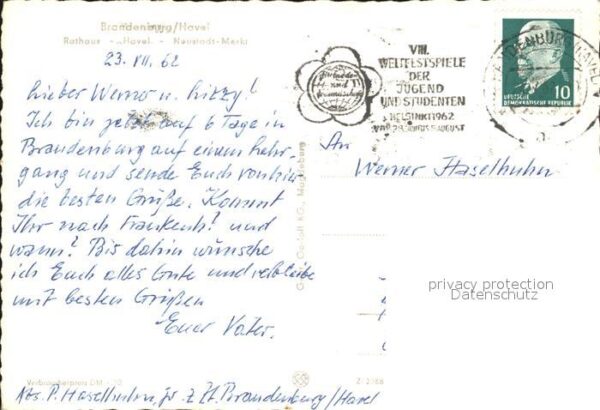 Brandenburg/Havel
Rathaus - Havel - Neustadt-Markt
23. VII. 62
Lieber Werner u.
Ich bin jetzt auf 6 Tage in
Brandenburg auf einem Lehr-
gang und sende Euch von hier
die besten Grüße. Kommt
Ihr nach Frankenh! und
wann? Bis dahin wünsche
ich Euch alles Gute und verbleibe
mit besten Grüßen
Euer Vater.
Verbraucherpreis DM
Abs. P. Haselhuhn, z. Zt. Brandenburg/Havel
Magdeburg
VIII.
WELTFESTSPIELE
DER
JUGEND
UND STUDENTEN
HELSINKI 1962
AUGUST
DEUTSCHE
DEMOKRATISCHE REPUBLIK
10
BRANDENBURG (HAVEL)
An
Werner Haselhuhn
privacy protection
Datenschutz